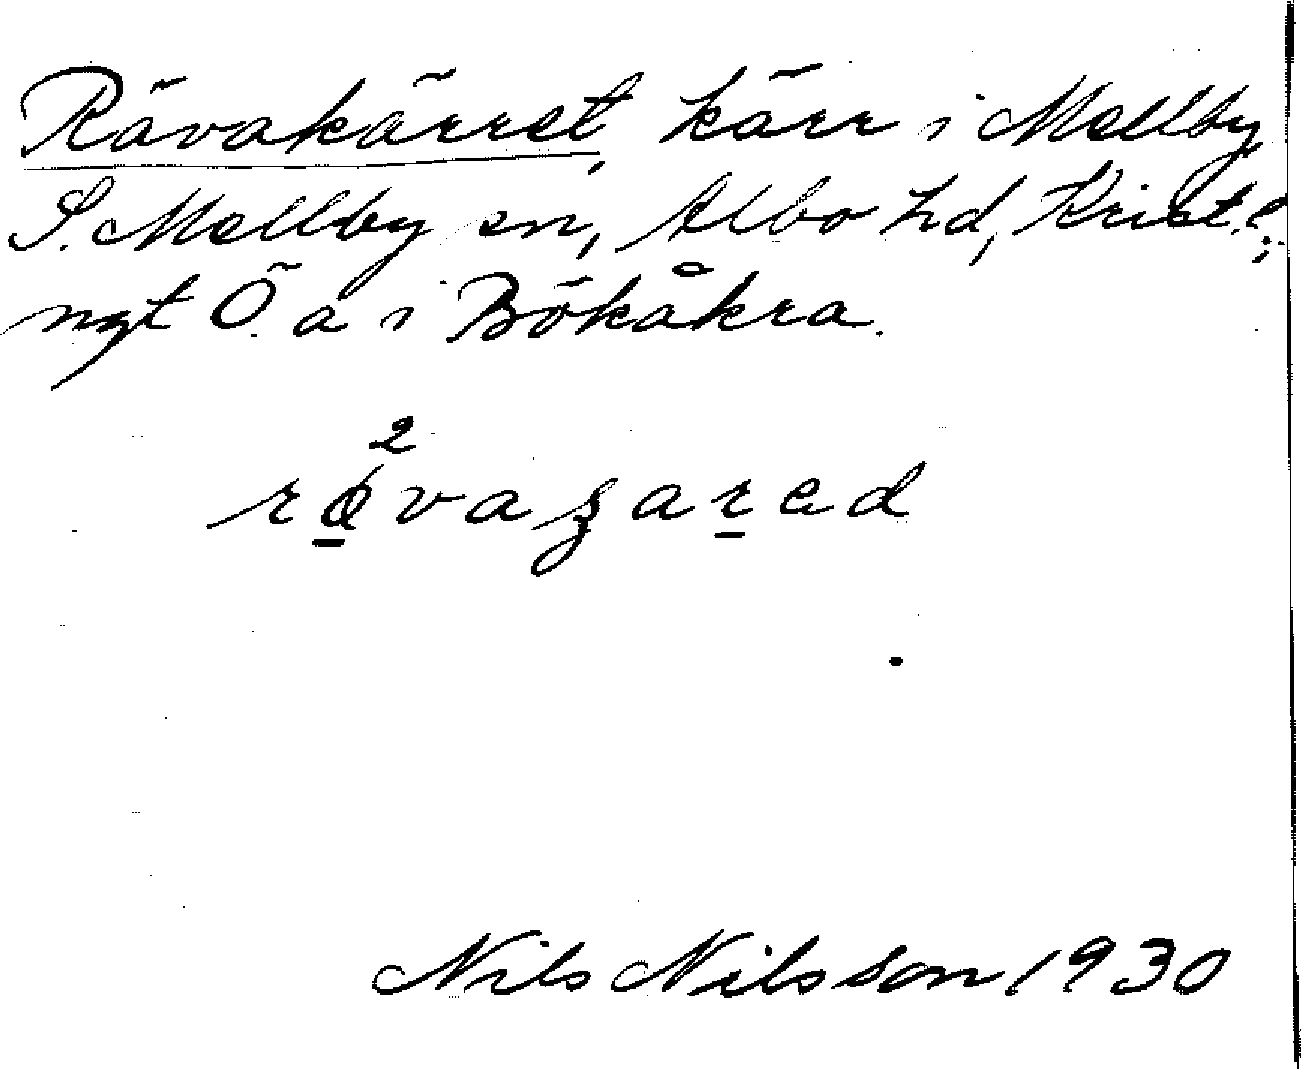 Rävakärret, kärr i Mellby
S. Mellby sn, Albo hd, Krist. l.;
ngt Ö. a i Bökåkra.
2
rø̱vaʒaṟed
Nils Nilsson 1930